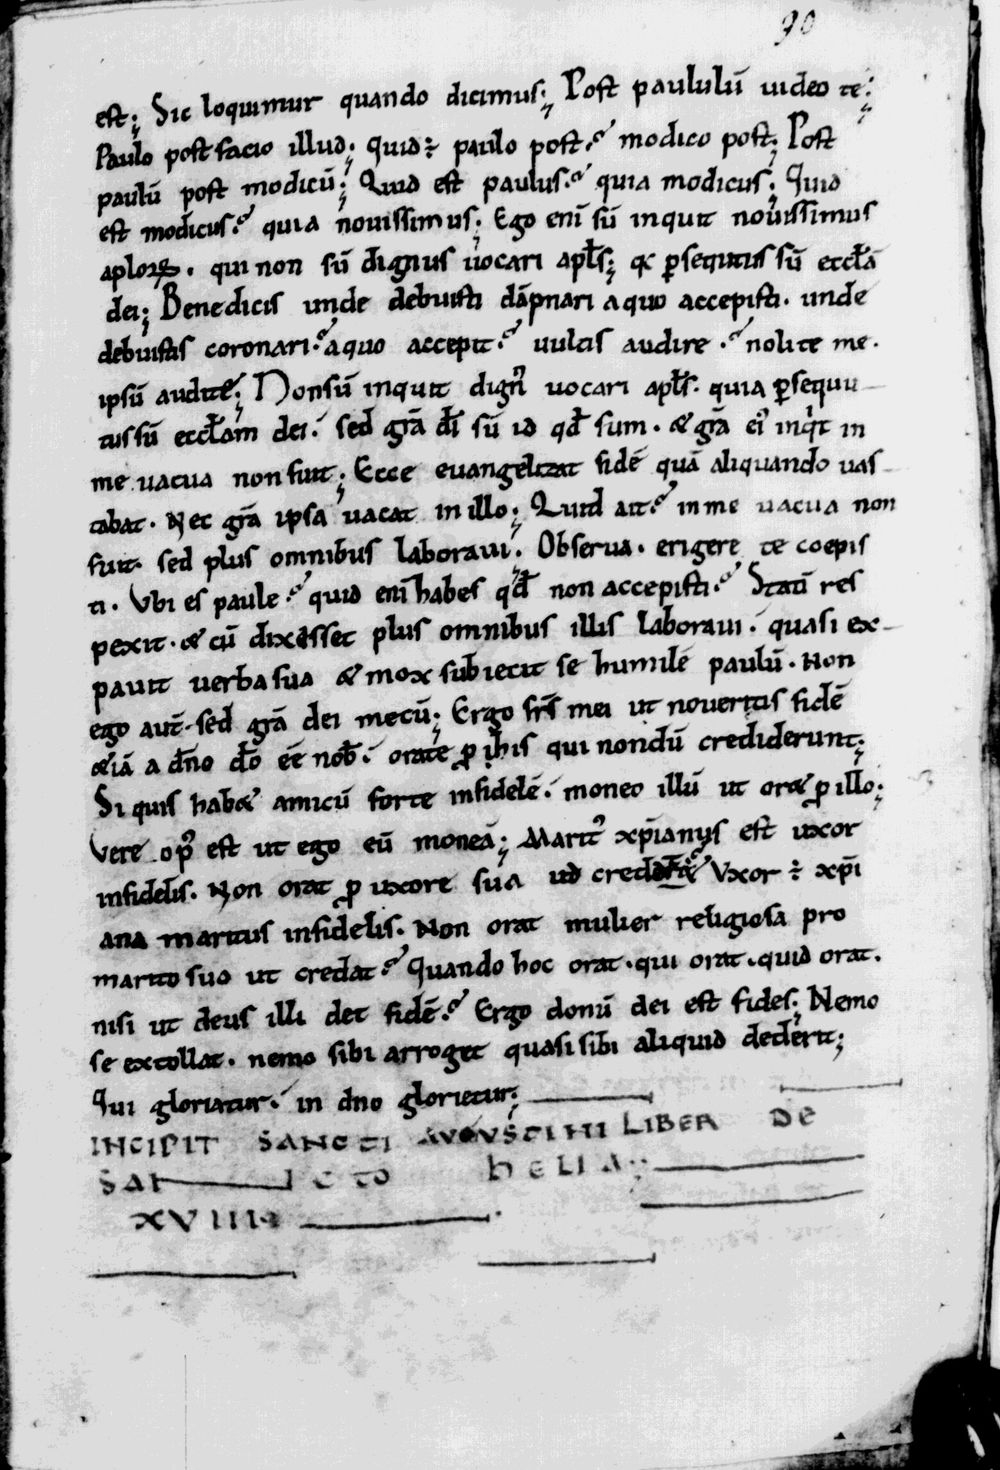 90
est; Sic loquimur quando dicimus; Post paululū uideo te;
Paulo post facio illud; quid ÷ paulo post? modico post; Post
paulū post modicū; Quid est paulus? quia modicus; Quid
est modicus? quia nouissimus; Ego eni sū inquit nouissimus
aploꝝ. qui non sū dignus uocari apl̄s; qa ꝑsequutus sū eccl̄ā
dei; Benedicis unde debuisti dāpnari a quo accepisti. unde
debuistis coronari? a quo accepit? uultis audire? nolite me.
ipsū audite; Non sū inquit dign᷒ uocari apl̄s. quia ꝑsequu
tus sū eccl̄am dei. sed grā dī sū id qd̄ sum. & grā ei᷒ inqͥt in
me uacua non fuit; Ecce euangelizat fidē quā aliquando uas
tabat. Nec grā ipsa uacat in illo; Quid ait? in me uacua non
fuit. sed plus omnibus laboraui; Obserua. erigere te coepis
ti. Ubi es paule? quid enī habes qd̄ non accepisti? Statī res
pexit. & cū dixisset plus omnibus illis laboraui. quasi ex
pauit uerba sua & mox subiecit se humilē paulū. Non
ego aut̄. sed grā dei mecū; Ergo frs̄ mei ut noueritis fidē
&iā a dn̄o dō eē nob̄. orate ꝓ ih̄is qui nondū crediderunt;
Si quis hab& amicū forte infidelē. moneo illū ut or& ꝓ illo;
Vere op᷒ est ut ego eū moneā; Marit᷒ xp̄ianus est uxor
infidelis. Non orat ꝓ uxore sua ut credat? Uxor ÷ xp̄i
ana maritus infidelis. Non orat mulier religiosa pro
marito suo ut credat? Quando hoc orat. qui orat. quid orat.
nisi ut deus illi det fidē? Ergo donū dei est fides; Nemo
se extollat. nemo sibi arroget quasi sibi aliquid dederit;
Qui gloriatur. in dno glorietur;
INCIPIT SANCTI AUGUSTINI LIBER DE
SAN CTO HELIA;
XVIIII